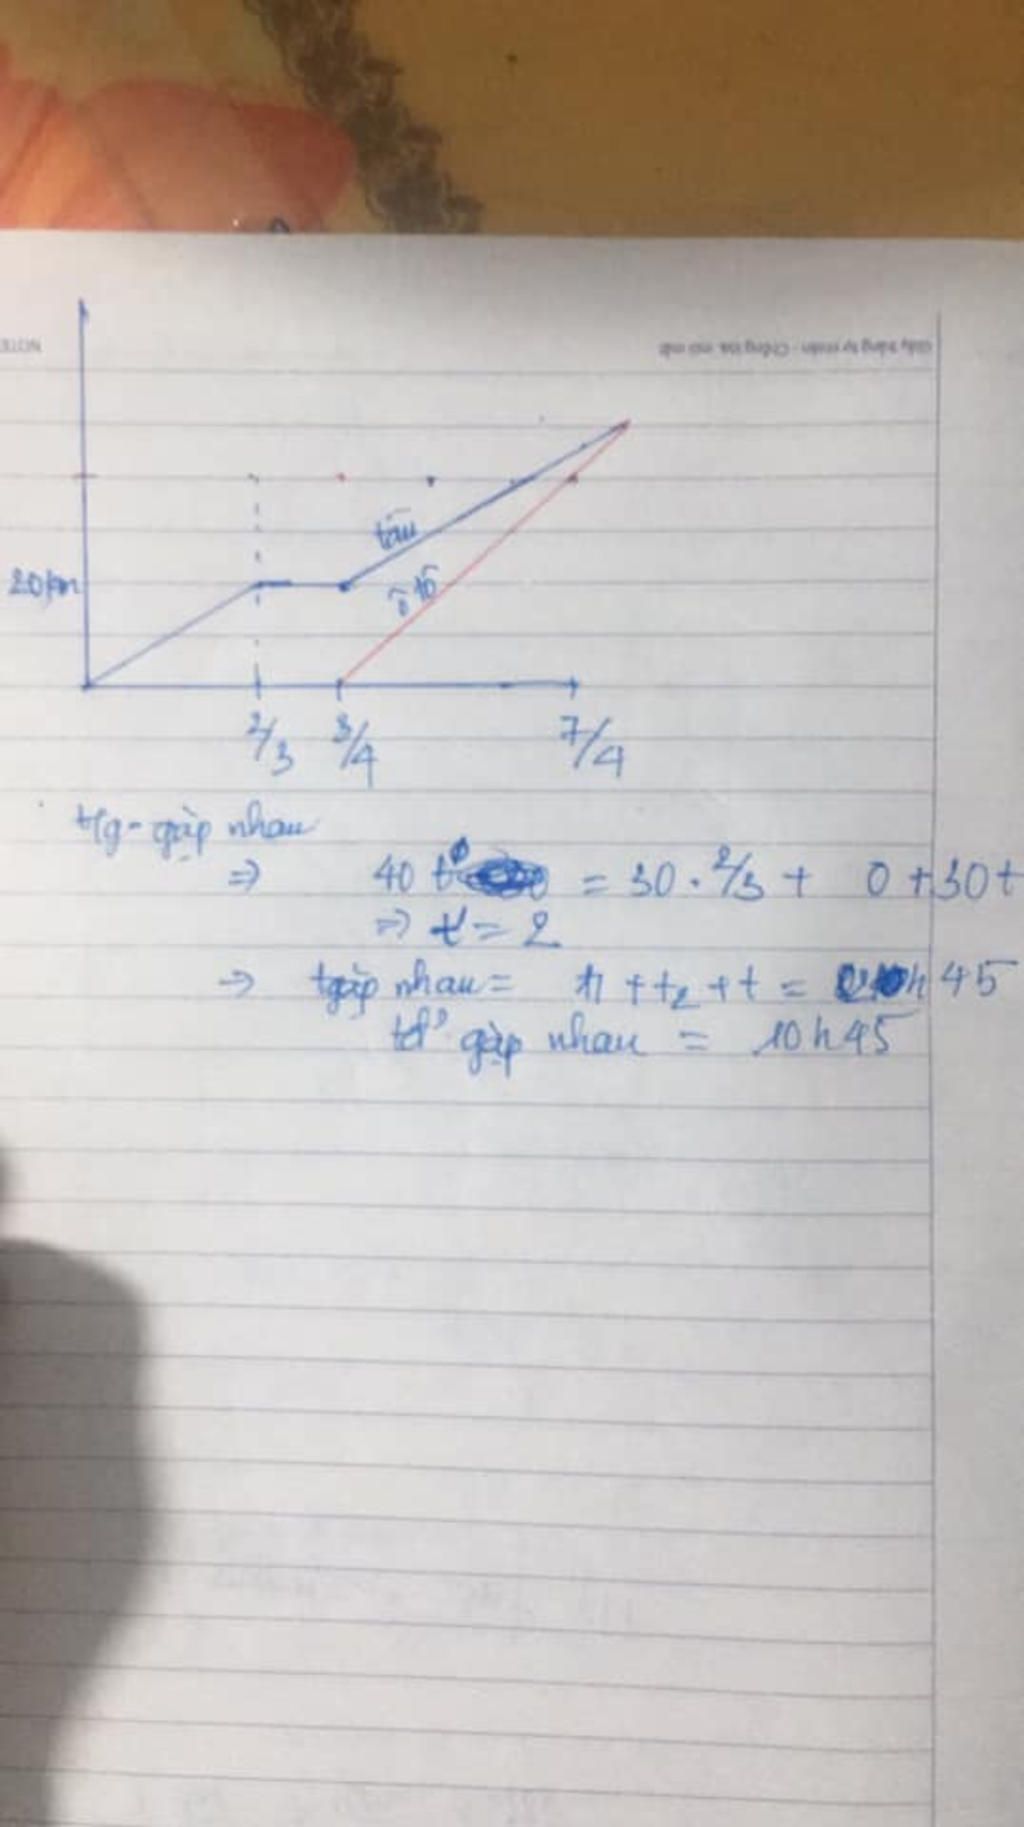 NOTE
Giấy trắng tự nhiên - Chống lóa, mỏi mắt
tàu
20km
ô tô
2/3 3/4 7/4
tg gặp nhau
=> 40 t = 30 . 2/3 + 0 + 30t
=> t = 2
=> tgặp nhau = t1 + t2 + t = h 45
tđ' gặp nhau = 10h45